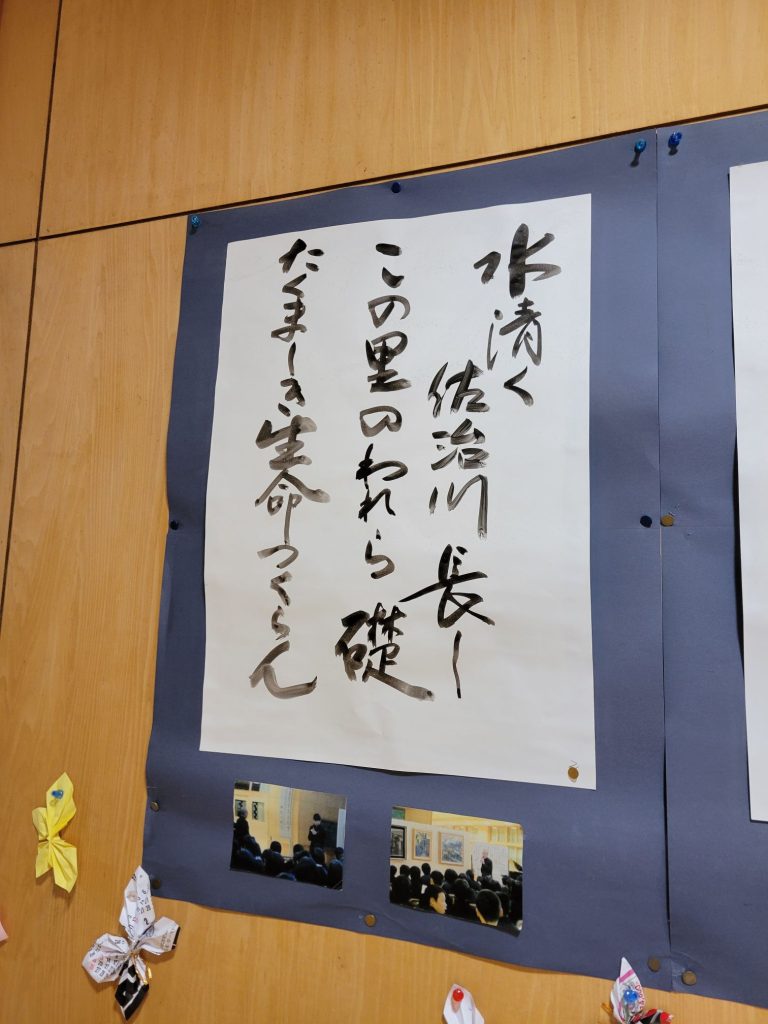 水清く
佐治川 長し
この里のわれら 礎
たくましき生命つくらん